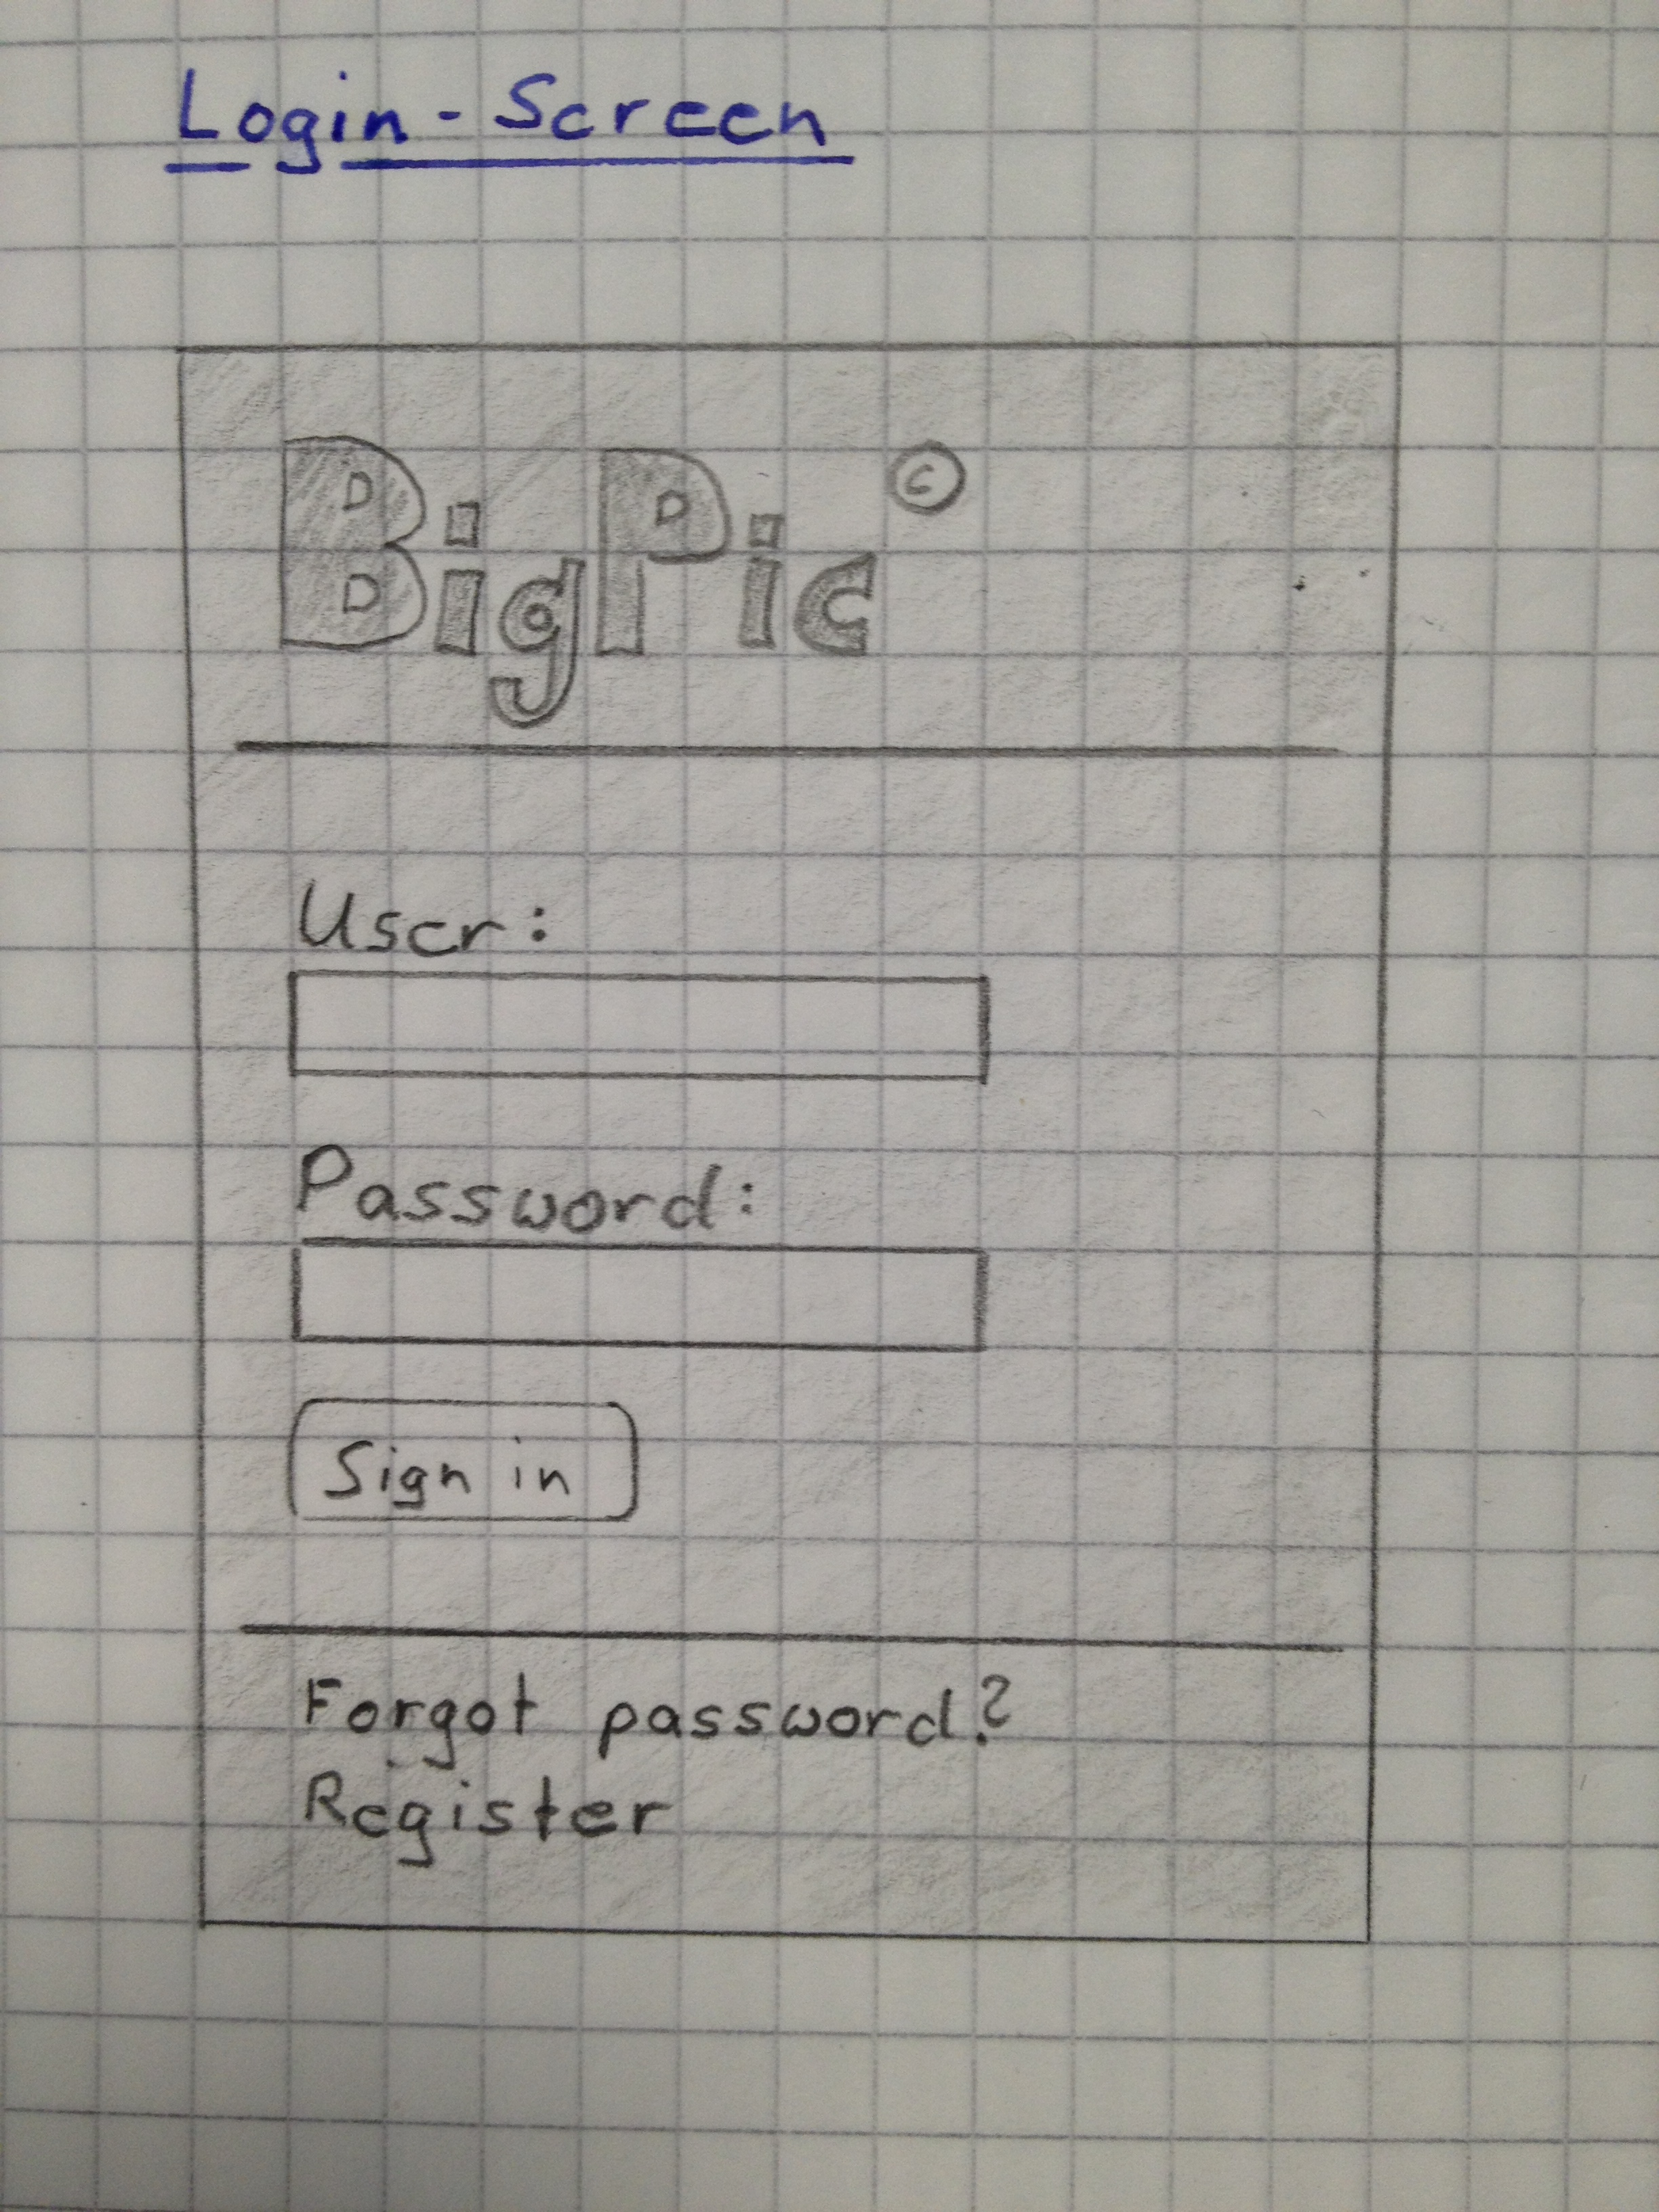 Login-Screen
BigPic©
User:
Password:
Sign in
Forgot password?
Register